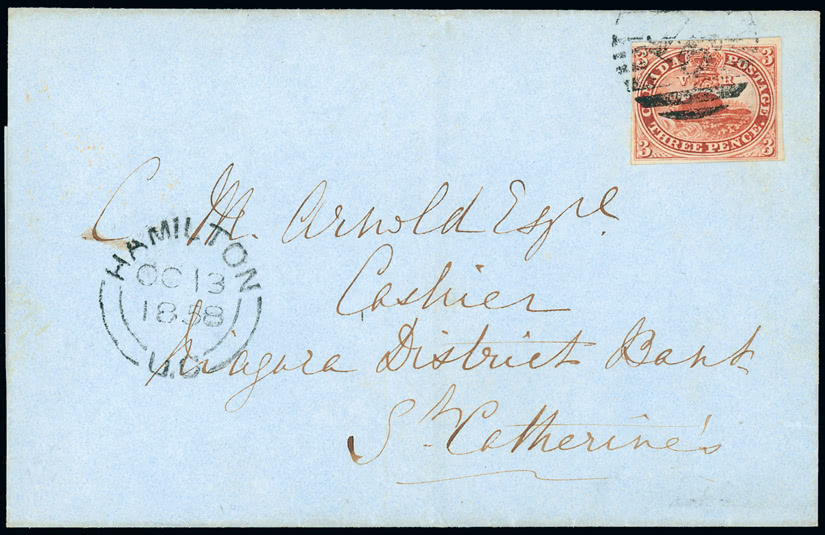 3 CANADA POSTAGE 3
V R
3 THREE PENCE. 3
C. M. Arnold Esqre
HAMILTON
OC 13
1858
U.C
Cashier
Niagara District Bank
St. Catherine's